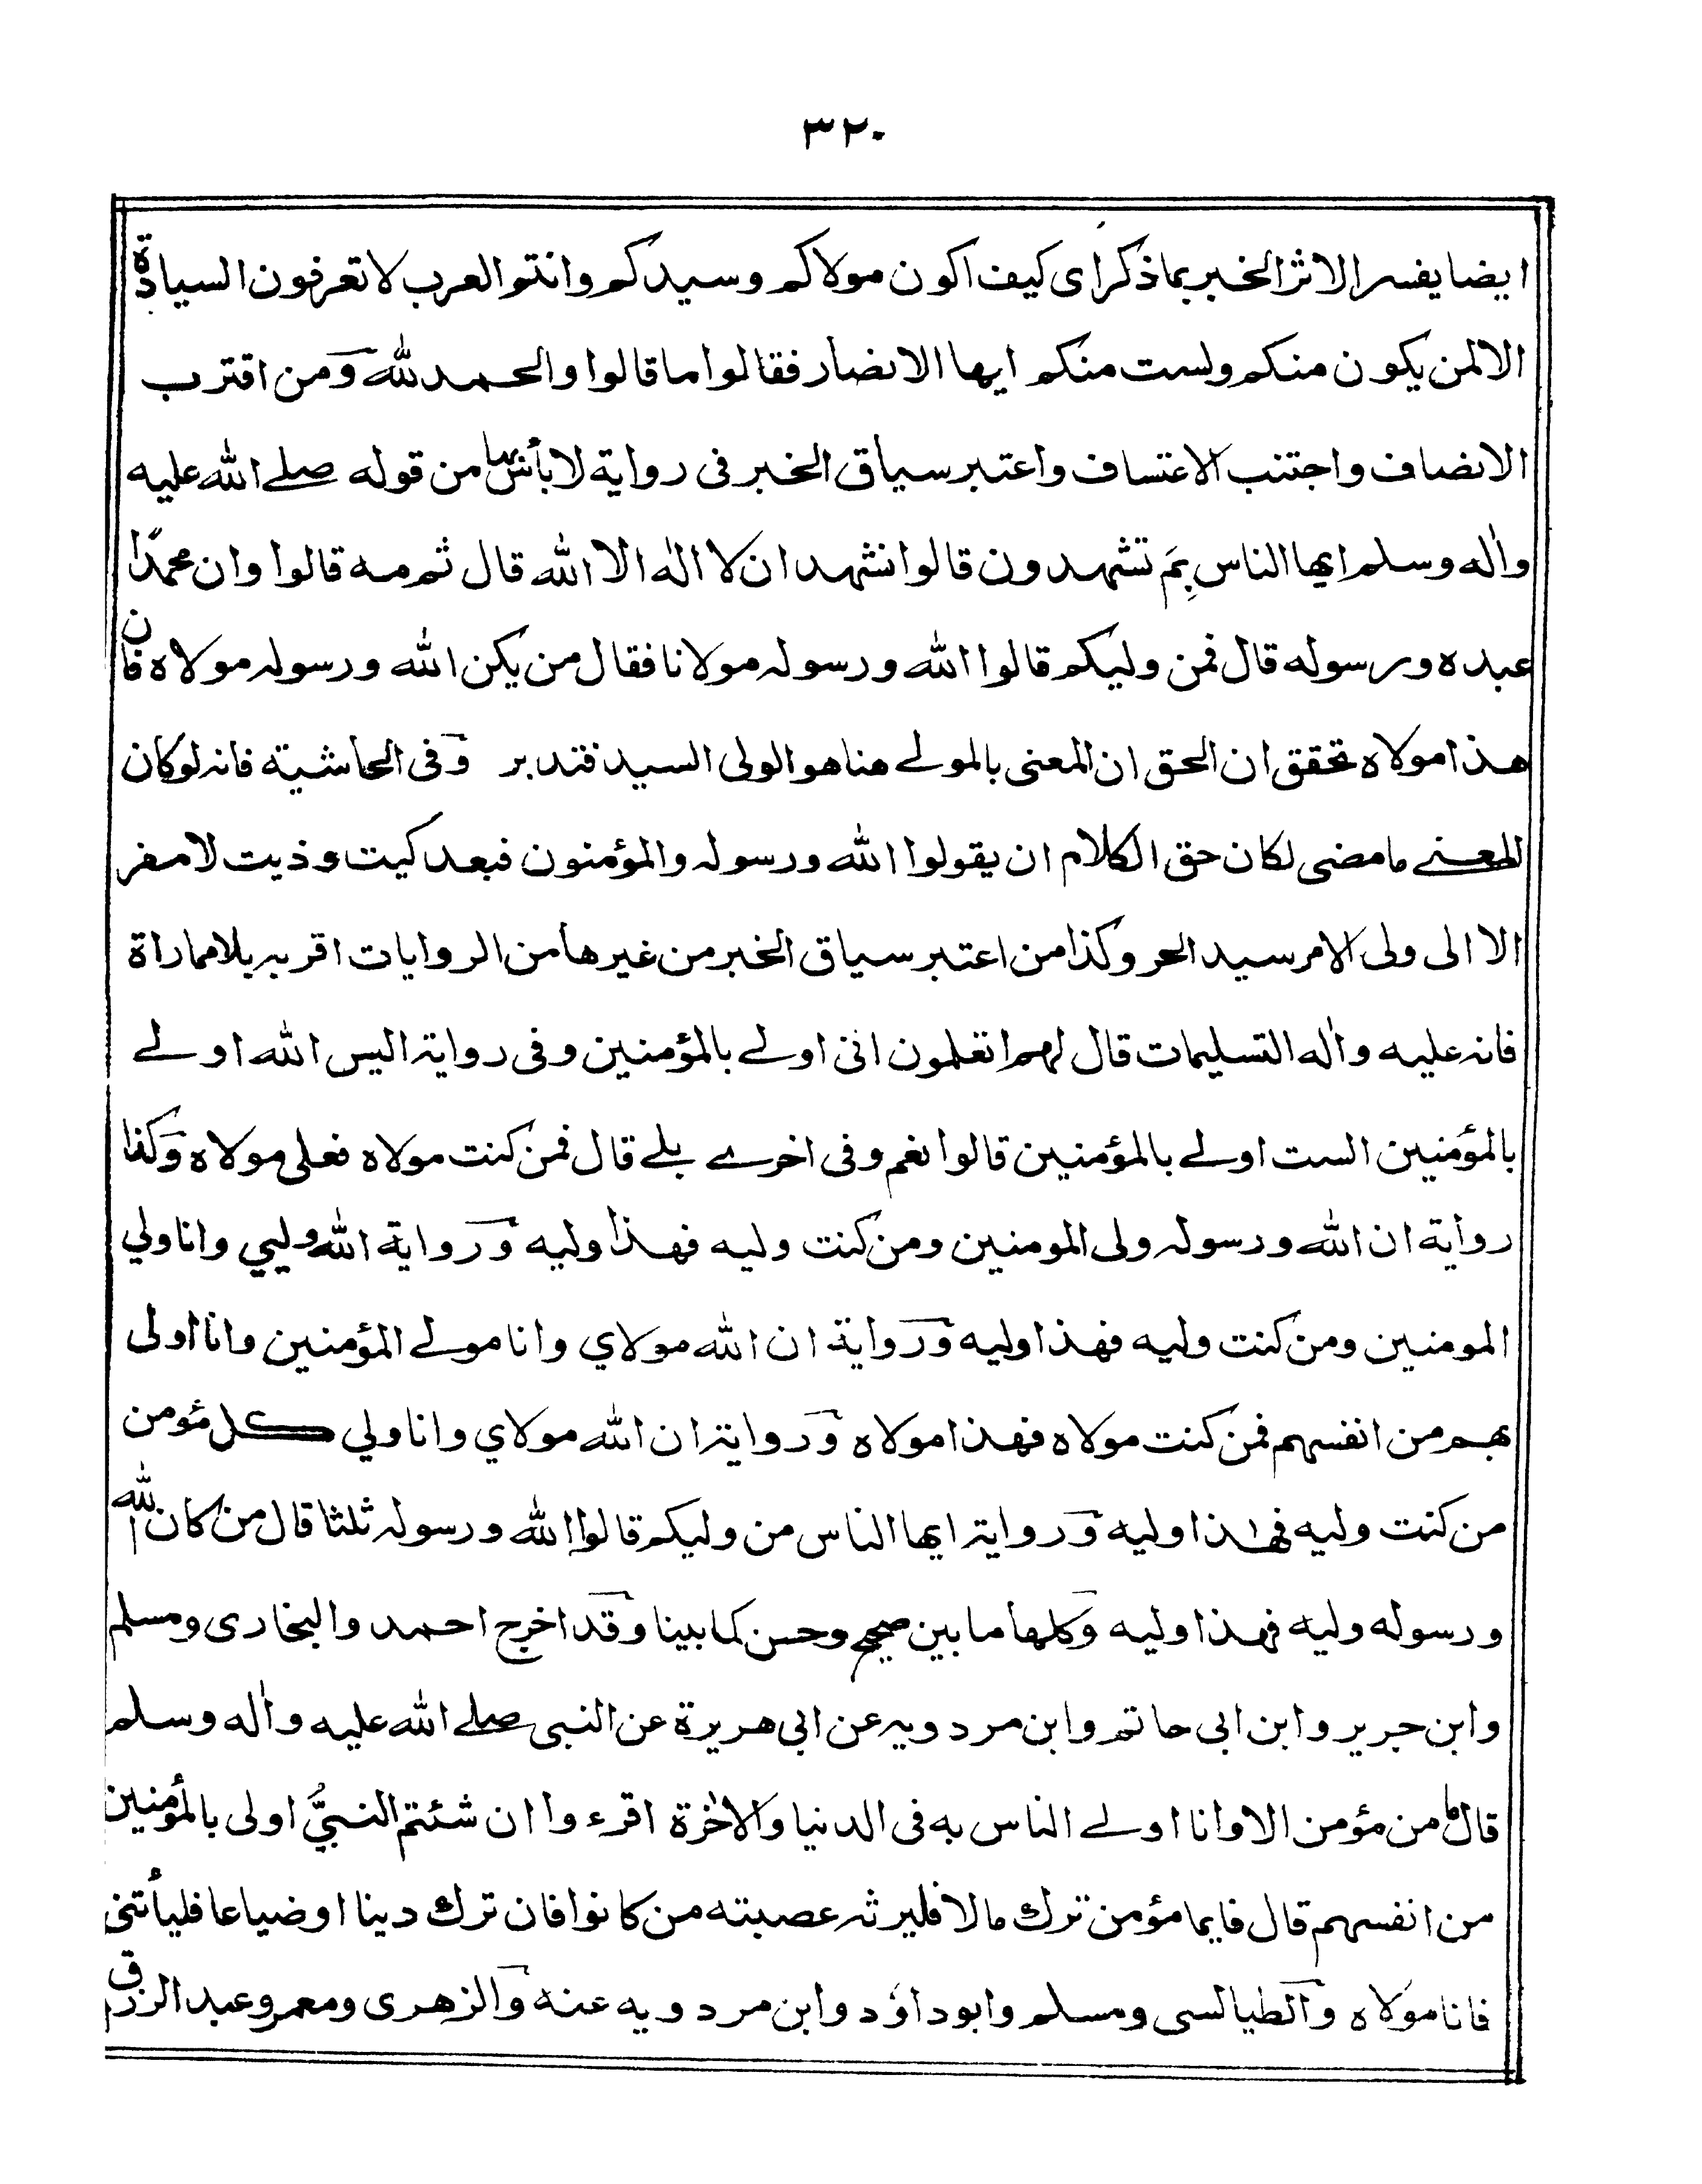 ٣٢٠
ايضا يفسر الاثر الخبر بما ذكر اى كيف اكون مولاكم وسيدكم وانتم العرب لا تعرفون السيادة
الا لمن يكون منكم ولست منكم ايها الانصار فقالوا ما قالوا والحمد لله ومن اقترب
الانصاف واجتنب الاعتساف واعتبر سياق الخبر فى رواية لا بأس بها من قوله صلے الله عليه
واٰله وسلم ايها الناس بِمَ تشهدون قالوا نشهد ان لا اله الا الله قال ثم مه قالوا وان محمدًا
عبده ورسوله قال فمن وليكم قالوا الله ورسوله مولانا فقال من يكن الله ورسوله مولاه فان
هذا مولاه تحقق ان الحق ان المعنى بالمولے هنا هو الولى السيد فتدبر وفى الحاشية فانه لو كان
المعنے ما مضى لكان حق الكلام ان يقولوا الله ورسوله والمؤمنون فبعد كيت وذيت لا مفر
الا الى ولى الامر سيد الحر وكذا من اعتبر سياق الخبر من غيرها من الروايات اقر به بلا مماراة
فانه عليه واٰله التسليمات قال لهم اتعلمون انى اولے بالمؤمنين وفى رواية اليس الله اولے
بالمؤمنين الست اولے بالمؤمنين قالوا نعم وفى اخرے بلے قال فمن كنت مولاه فعلى مولاه وكذا
رواية ان الله ورسوله ولى المومنين ومن كنت وليه فهذا وليه ورواية الله وليي وانا ولي
المومنين ومن كنت وليه فهذا وليه ورواية ان الله مولاي وانا مولے المؤمنين وانا اولى
بهم من انفسهم فمن كنت مولاه فهذا مولاه ورواية ان الله مولاي وانا ولي كل مؤمن
من كنت وليه فهذا وليه ورواية ايها الناس من وليكم قالوا الله ورسوله ثلثا قال من كان الله
ورسوله وليه فهذا وليه وكلها ما بين صحيح وحسن كما بينا وقد اخرج احمد والبخارى ومسلم
وابن جرير وابن ابى حاتم وابن مردويه عن ابى هريرة عن النبى صلے الله عليه واٰله وسلم
قال ما من مؤمن الا وانا اولے الناس به فى الدنيا والاخرة اقرءوا ان شئتم النبىُّ اولى بالمؤمنين
من انفسهم قال فايما مؤمن ترك مالا فليرثه عصبته من كانوا فان ترك دينا او ضياعا فليأتنى
فانا مولاه والطيالسى ومسلم وابو داؤد وابن مردويه عنه والزهرى ومعمر وعبد الرزق